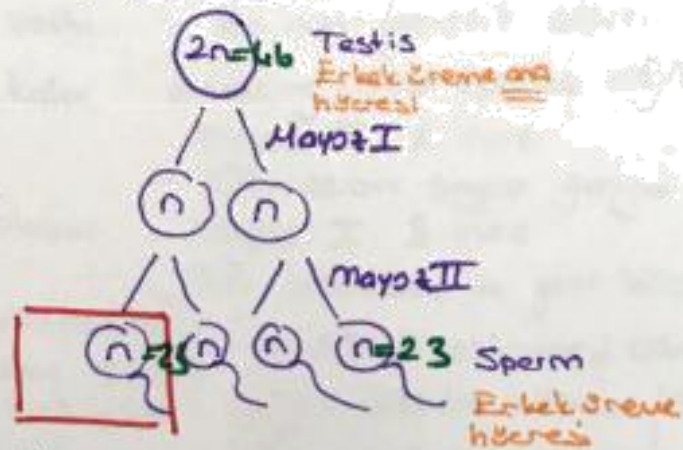 2n=46 Testis
Erkek üreme ana
hücresi
Mayoz I
n n
Mayoz II
n=23 n n n=23 Sperm
Erkek üreme
hücresi